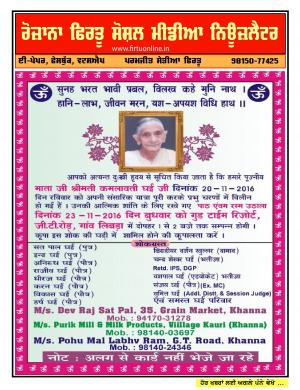 ਰੋਜ਼ਾਨਾ ਫਿਰਤੂ ਸੋਸ਼ਲ ਮੀਡੀਆ ਨਿਊਜ਼ਲੈਟਰ
www.firtuonline.in
ਈ-ਪੇਪਰ, ਫੇਸਬੁੱਕ, ਵਟਸਐਪ ਪਰਮਜੀਤ ਸੇਤੀਆ ਫਿਰਤੂ 98150-77425
ॐ सुनह भरत भावी प्रबल, विलख कहे मुनि नाथ । ॐ
हानि-लाभ, जीवन मरन, यश-अपयश विधि हाथ ।।
आपको अत्यन्त दुःखी हृदय से सूचित किया जाता है कि हमारे पूज्नीय
माता जी श्रीमती कमलावती घई जी दिनांक 20-11-2016
दिन रविवार को अपनी संसारिक यात्रा पूरी करके प्रभु चरणों में विलीन
हो गई हैं । उनकी आत्मिक शांति के लिए रखे गए पाठ एंवम रस्म उठाला
दिनांक 23-11-2016 दिन बुधवार को गुड टाईम रिजोर्ट,
जी.टी.रोड़, गांव लिबड़ा में दोपहर 1 से 2 बजे तक सम्पन्न होगी ।
कृपा इस शोक की घड़ी में शामिल होने की कृपालता करें ।
शोकग्रस्त
सत पाल घई (पुत्र)
इन्द्र घई (पुत्र)
अनिरूध घई (पुत्र)
राजीव घई (पुत्र)
धीरज घई (पुत्र)
करन घई (पुत्र)
विकास घई (पुत्र)
हर्ष घई (पुत्र)
Retd. IPS, DGP
यशपाल घई (एडवोकेट) भतीजा
संजय घई (पुत्र) (Ex. MC)
सुमित घई (Addl. Distt. & Session Judge)
एंवं समस्त घई परिवार
M/s. Dev Raj Sat Pal, 35, Grain Market, Khanna
Mob. : 94170-31278
M/s. Purik Mill & Milk Products, Village Kauri (Khanna)
Mob. : 98140-03697
M/s. Pohu Mal Labhv Ram, G.T. Road, Khanna
Mob. : 98140-24346
नोट : अलग से कार्ड नहीं भेजे जा रहे
ਹੋਰ ਖਬਰਾਂ ਲਈ ਅਗਲੇ ਪੰਨੇ ਵੇਖੋ ...